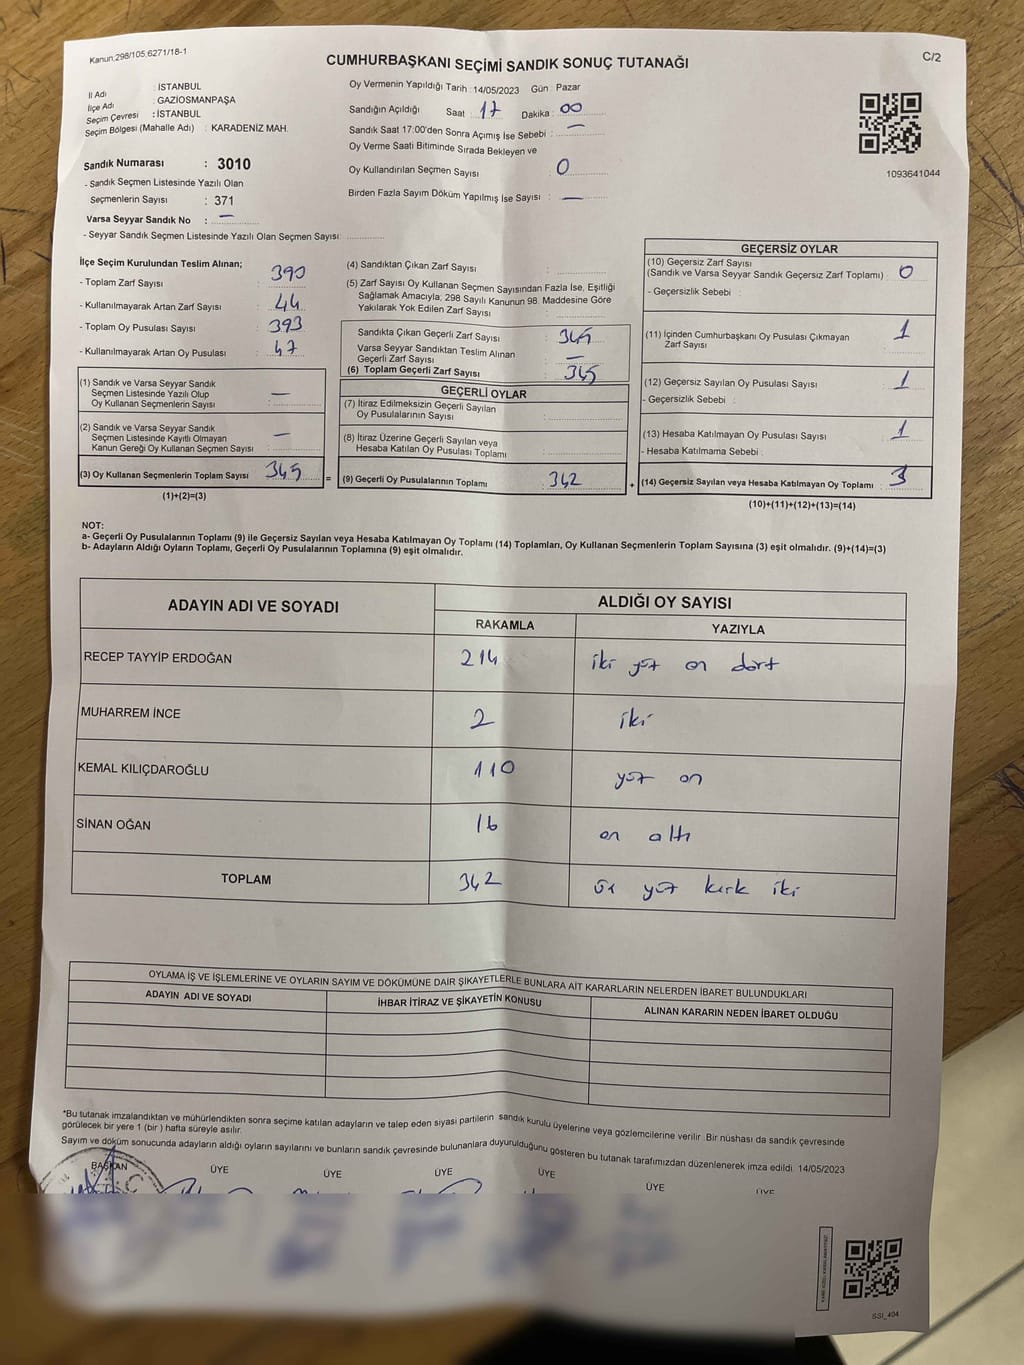 Kanun.298/105,6271/18-1
CUMHURBAŞKANI SEÇİMİ SANDIK SONUÇ TUTANAĞI
C/2
İl Adı : İSTANBUL
İlçe Adı : GAZİOSMANPAŞA
Seçim Çevresi : İSTANBUL
Seçim Bölgesi (Mahalle Adı) : KARADENİZ MAH.
Sandık Numarası : 3010
- Sandık Seçmen Listesinde Yazılı Olan
Seçmenlerin Sayısı : 371
Varsa Seyyar Sandık No : —
- Seyyar Sandık Seçmen Listesinde Yazılı Olan Seçmen Sayısı:
Oy Vermenin Yapıldığı Tarih :14/05/2023 Gün : Pazar
Sandığın Açıldığı Saat : 17 Dakika : 00
Sandık Saat 17:00'den Sonra Açımış İse Sebebi : —
Oy Verme Saati Bitiminde Sırada Bekleyen ve
Oy Kullandırılan Seçmen Sayısı : 0
Birden Fazla Sayım Döküm Yapılmış İse Sayısı : —
1093641044
İlçe Seçim Kurulundan Teslim Alınan;
- Toplam Zarf Sayısı : 390
- Kullanılmayarak Artan Zarf Sayısı : 44
- Toplam Oy Pusulası Sayısı : 393
- Kullanılmayarak Artan Oy Pusulası : 47
(1) Sandık ve Varsa Seyyar Sandık
Seçmen Listesinde Yazılı Olup
Oy Kullanan Seçmenlerin Sayısı : —
(2) Sandık ve Varsa Seyyar Sandık
Seçmen Listesinde Kayıtlı Olmayan
Kanun Gereği Oy Kullanan Seçmen Sayısı : —
(3) Oy Kullanan Seçmenlerin Toplam Sayısı : 345
(1)+(2)=(3)
=
(4) Sandıktan Çıkan Zarf Sayısı :
(5) Zarf Sayısı Oy Kullanan Seçmen Sayısından Fazla İse, Eşitliği
Sağlamak Amacıyla; 298 Sayılı Kanunun 98. Maddesine Göre
Yakılarak Yok Edilen Zarf Sayısı :
Sandıkta Çıkan Geçerli Zarf Sayısı : 345
Varsa Seyyar Sandıktan Teslim Alınan
Geçerli Zarf Sayısı : —
(6) Toplam Geçerli Zarf Sayısı : 345
GEÇERLİ OYLAR
(7) İtiraz Edilmeksizin Geçerli Sayılan
Oy Pusulalarının Sayısı :
(8) İtiraz Üzerine Geçerli Sayılan veya
Hesaba Katılan Oy Pusulası Toplamı :
(9) Geçerli Oy Pusulalarının Toplamı : 342
+
GEÇERSİZ OYLAR
(10) Geçersiz Zarf Sayısı
(Sandık ve Varsa Seyyar Sandık Geçersiz Zarf Toplamı) : 0
- Geçersizlik Sebebi :
(11) İçinden Cumhurbaşkanı Oy Pusulası Çıkmayan
Zarf Sayısı : 1
(12) Geçersiz Sayılan Oy Pusulası Sayısı : 1
- Geçersizlik Sebebi :
(13) Hesaba Katılmayan Oy Pusulası Sayısı : 1
- Hesaba Katılmama Sebebi :
(14) Geçersiz Sayılan veya Hesaba Katılmayan Oy Toplamı : 3
(10)+(11)+(12)+(13)=(14)
NOT:
a- Geçerli Oy Pusulalarının Toplamı (9) ile Geçersiz Sayılan veya Hesaba Katılmayan Oy Toplamı (14) Toplamları, Oy Kullanan Seçmenlerin Toplam Sayısına (3) eşit olmalıdır. (9)+(14)=(3)
b- Adayların Aldığı Oyların Toplamı, Geçerli Oy Pusulalarının Toplamına (9) eşit olmalıdır.
ADAYIN ADI VE SOYADI
ALDIĞI OY SAYISI
RAKAMLA YAZIYLA
RECEP TAYYİP ERDOĞAN 214 iki yüz on dört
MUHARREM İNCE 2 iki
KEMAL KILIÇDAROĞLU 110 yüz on
SİNAN OĞAN 16 on altı
TOPLAM 342 üç yüz kırk iki
OYLAMA İŞ VE İŞLEMLERİNE VE OYLARIN SAYIM VE DÖKÜMÜNE DAİR ŞİKAYETLERLE BUNLARA AİT KARARLARIN NELERDEN İBARET BULUNDUKLARI
ADAYIN ADI VE SOYADI İHBAR İTİRAZ VE ŞİKAYETİN KONUSU ALINAN KARARIN NEDEN İBARET OLDUĞU
*Bu tutanak imzalandıktan ve mühürlendikten sonra seçime katılan adayların ve talep eden siyasi partilerin sandık kurulu üyelerine veya gözlemcilerine verilir. Bir nüshası da sandık çevresinde
görülecek bir yere 1 (bir ) hafta süreyle asılır.
Sayım ve döküm sonucunda adayların aldığı oyların sayılarını ve bunların sandık çevresinde bulunanlara duyurulduğunu gösteren bu tutanak tarafımızdan düzenlenerek imza edildi. 14/05/2023
BAŞKAN ÜYE ÜYE ÜYE ÜYE ÜYE ÜYE
SSI_404